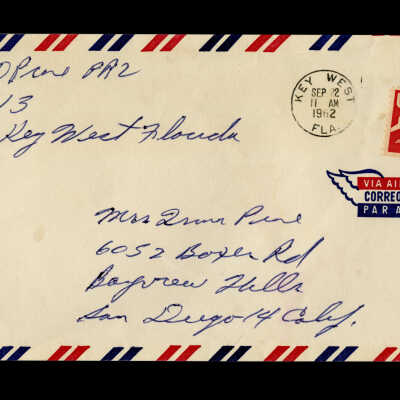 Prue PR2
13
Key West Florida
KEY WEST
SEP 12
11 AM
1962
FLA.
VIA AI
CORREO
PAR A
Mrs Prue
6052 Boxer Rd
Bayview Hills
San Diego 14 Calif.